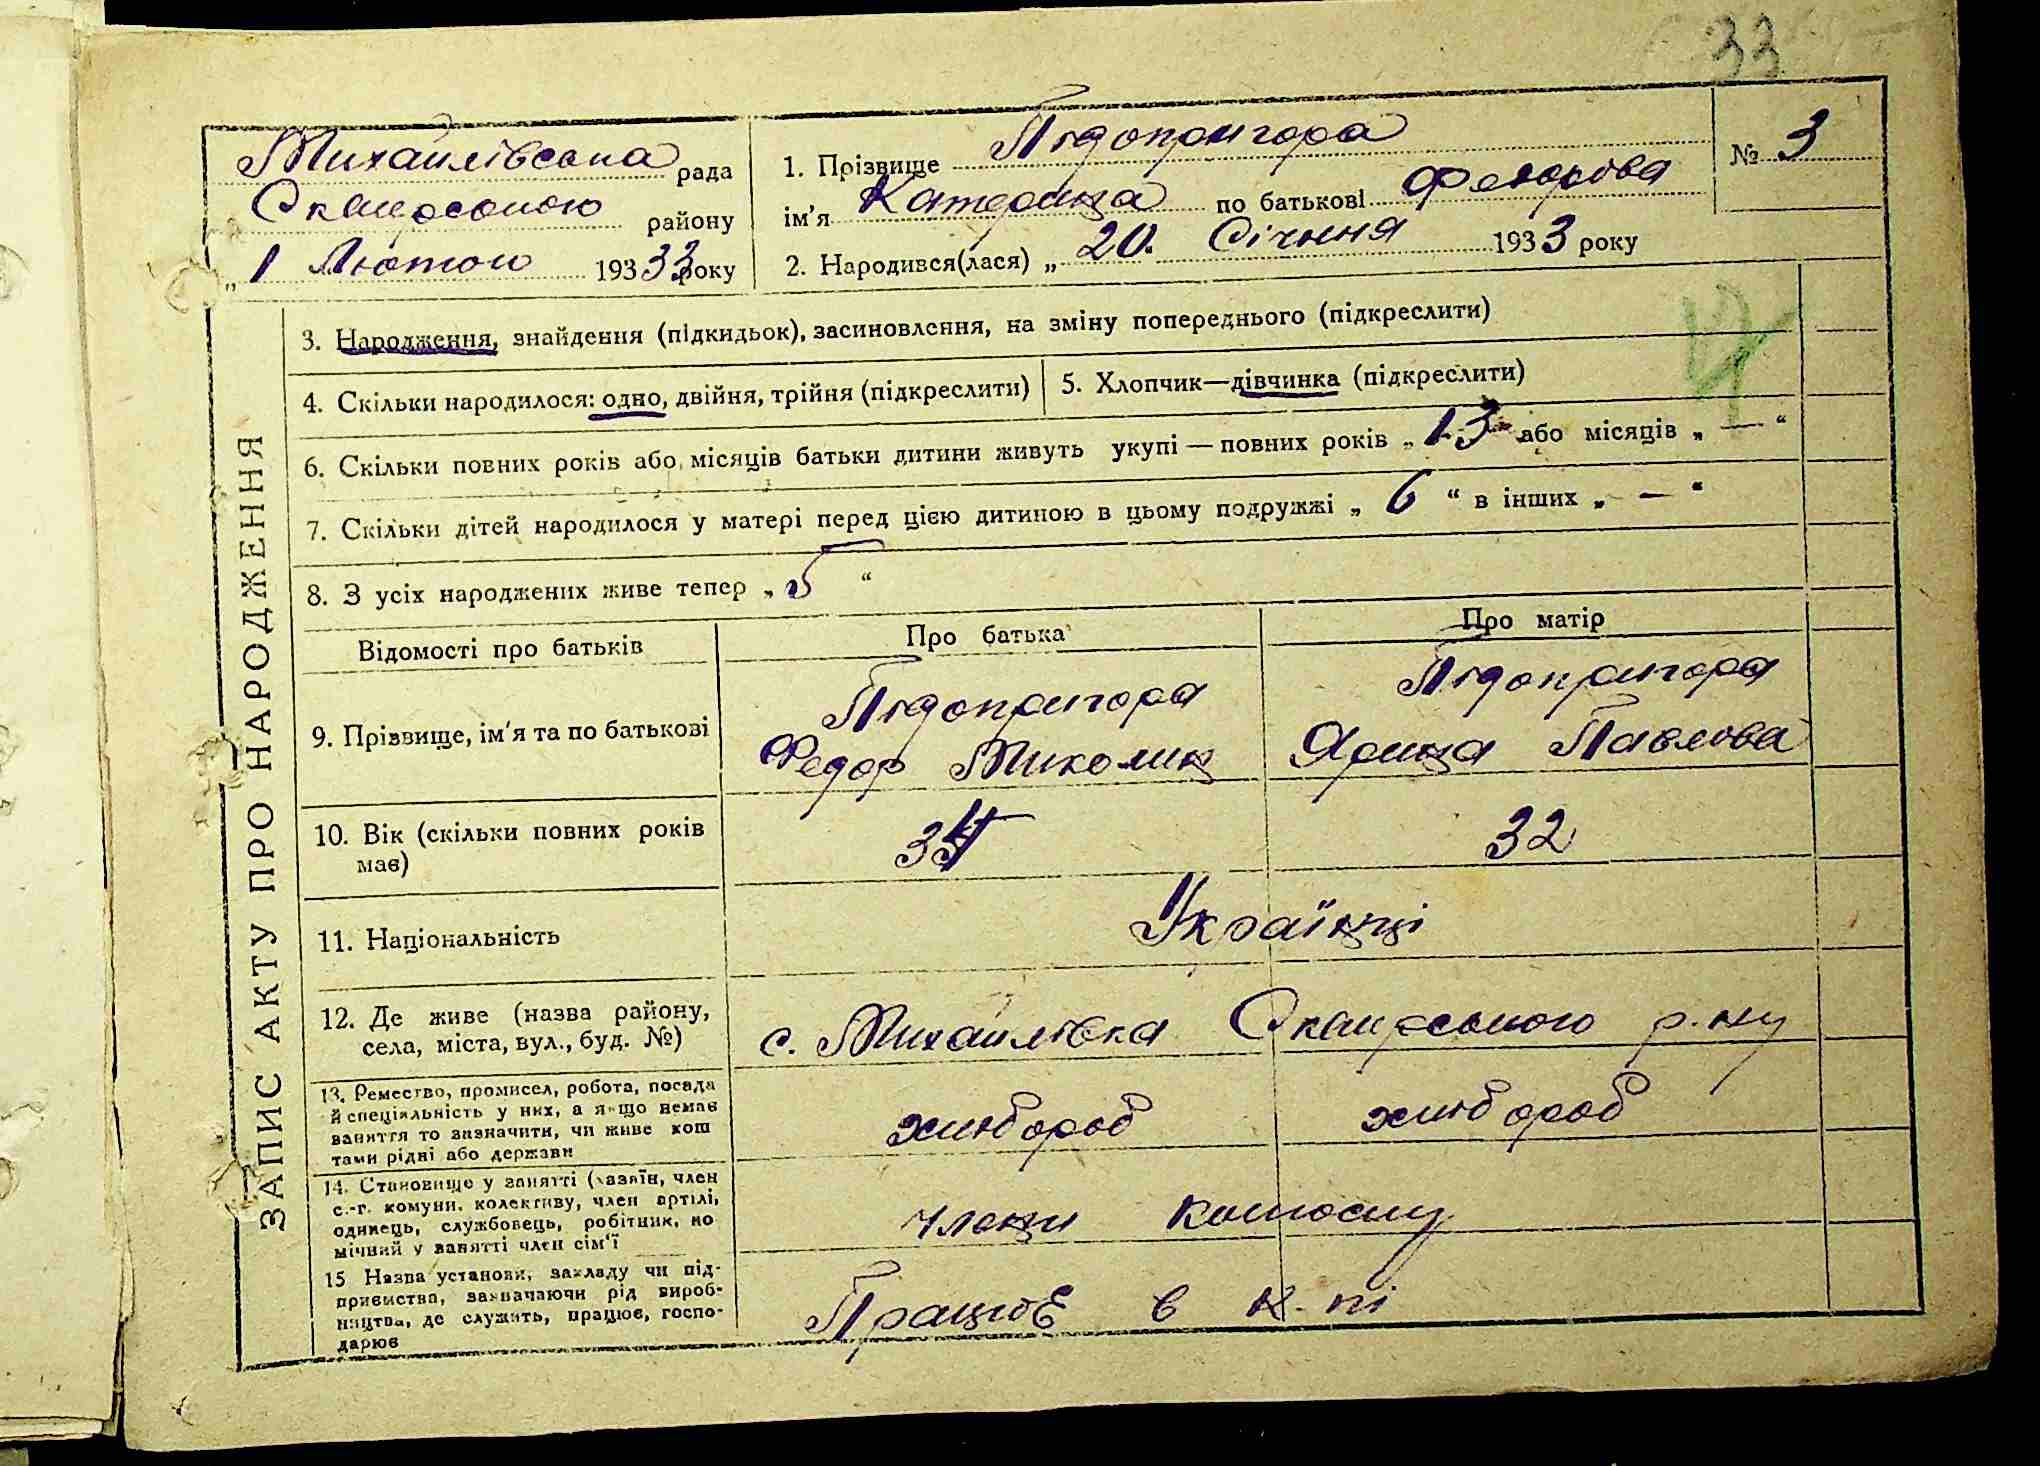 33
Михайлівська рада
Скандрського району
„ 1 Лютого 193 33 року
1. Прізвище Підопригора
ім'я Катерина по батькові Федорова
2. Народився(лася) „ 20. Січння 193 3 року
№ 3
ЗАПИС АКТУ ПРО НАРОДЖЕННЯ
3. Народження, знайдення (підкидьок), засиновлення, на зміну попереднього (підкреслити)
4. Скільки народилося: одно, двійня, трійня (підкреслити)
5. Хлопчик—дівчинка (підкреслити)
6. Скільки повних років або місяців батьки дитини живуть укупі — повних років „ 13 або місяців „ — “
7. Скільки дітей народилося у матері перед цією дитиною в цьому подружжі „ 6 “ в інших „ — “
8. З усіх народжених живе тепер „ 5 “
Відомості про батьків Про батька Про матір
9. Прізвище, ім'я та по батькові
Підопригора
Федор Миколин
Підопригора
Ярина Павлова
10. Вік (скільки повних років
має)
32
11. Національність
Українці
12. Де живе (назва району,
села, міста, вул., буд. №)
с. Михайлівка р.ну
13. Ремество, промисел, робота, посада
й спеціяльність у них, а якщо немає
заняття то зазначити, чи живе кош
тами рідні або держави
хлібороб хлібороб
14. Становище у занятті (хазяїн, член
с.-г. комуни, колективу, член артілі,
одинець, службовець, робітник, по
мічний у занятті член сім'ї
члени колгоспу
15 Назва установи, закладу чи під-
приємства, зазначаючи рід вироб-
ництва, де служить, працює, госпо-
дарює
Працює в к-пі